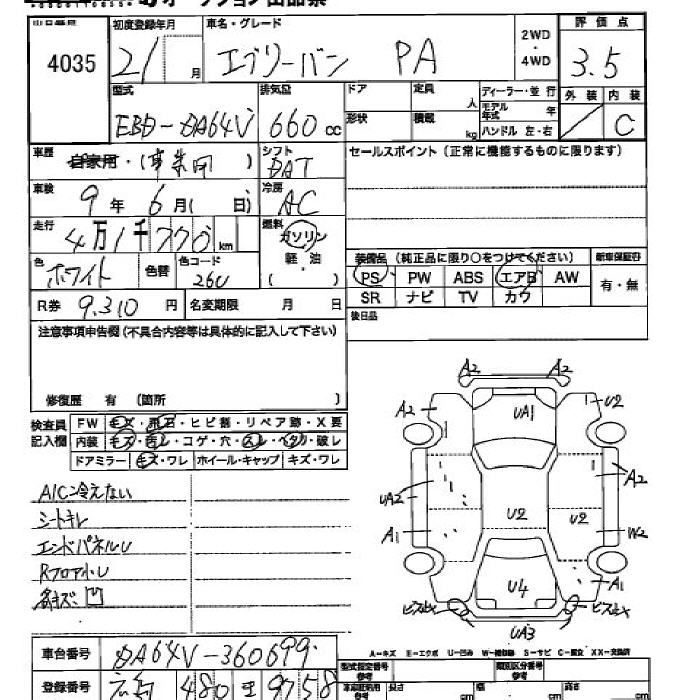 初度登録年月 車名・グレード 評価点
4035 21/ 月 エブリーバン PA 2WD・4WD 3.5
型式 排気量 ドア 定員 人 ディーラー・並行 外装 内装
EBD-DA64V 660cc 形状 積載 kg モデル年式 年 ハンドル 左・右 C
車歴 自家用・(事業用) シフト DAT セールスポイント(正常に機能するものに限ります)
車検 9年6月(日) 冷房 AC
走行 4万1千770km 燃料 ガソリン 軽・油 ( )
色 ホワイト 色替 色コード 26U
装備品(純正品に限り○をつけてください) 新車保証書
PS PW ABS エアB AW 有・無
SR ナビ TV カワ
R券 9.310円 名変期限 月 日
後日品
注意事項申告欄(不具合内容等は具体的に記入して下さい)
修復歴 有 (箇所 )
検査員記入欄 FW キズ・飛石・ヒビ割・リペア跡・X要
内装 キズ・汚レ・コゲ・穴・スレ・ヘタリ・破レ
ドアミラー キズ・ワレ ホイール・キャップ キズ・ワレ
A/C冷えない
シートキレ
エンドパネルU
Rフロア小U
各キズ凹
A2 A2
A2 UA1 U2
UA2 A2
A1 U2 U2 W2
U4 A1
ビスキズ ビスキズ
UA3
A-キズ E-エクボ U-凹み W-補修跡 S-サビ C-腐食 XX-交換済
車台番号 DA64V-360699
型式指定番号 参考 類別区分番号 参考
登録番号 広島 480 9758
長さ cm 幅 cm 高さ cm